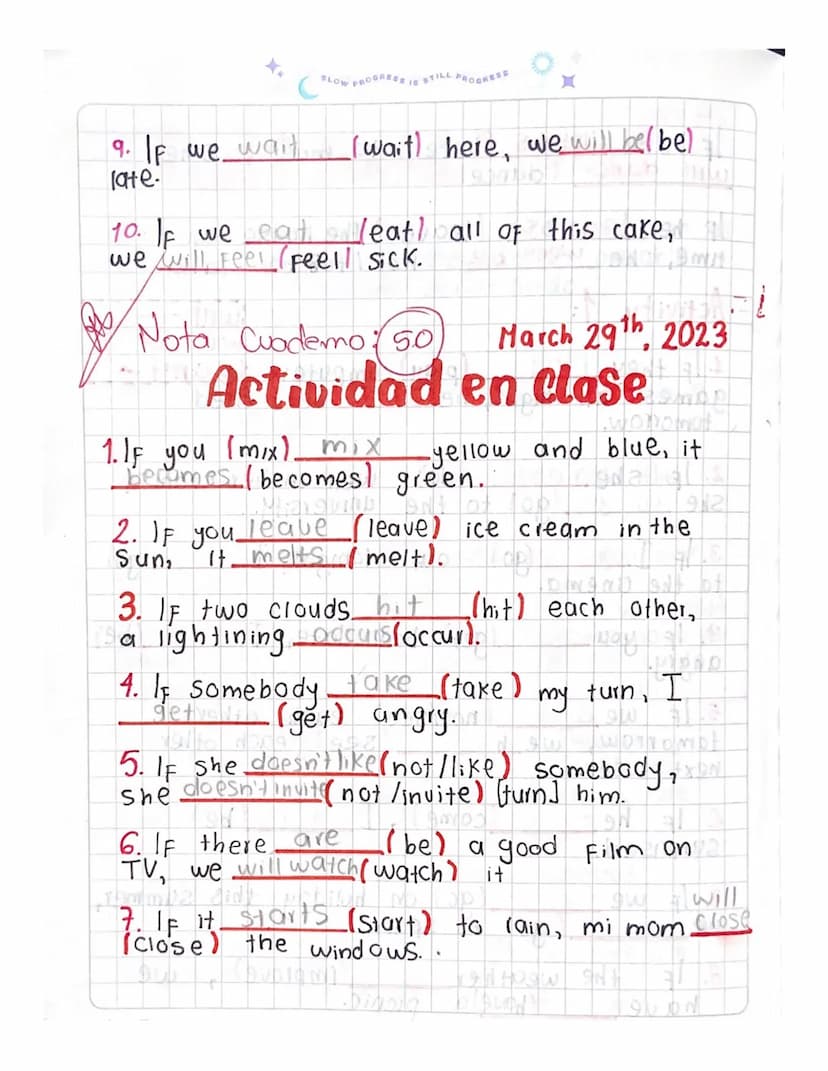 SLOW PROGRESS IS STILL PROGRESS
9. If we wait (wait) here, we will be (be)
late.
10. If we eat (eat) all of this cake,
we will feel (feel) sick.
Nota Cuaderno: 50 March 29th, 2023
Actividad en Clase
1. If you (mix) mix yellow and blue, it
becomes (becomes) green.
2. If you leave (leave) ice cream in the
sun, it melts (melt).
3. If two clouds hit (hit) each other,
a lightining occurs (occur).
4. If somebody take (take) my turn, I
get (get) angry.
5. If she doesn't like (not/like) somebody,
she doesn't invite (not/invite) [turn] him.
6. If there are (be) a good film on
TV, we will watch (watch) it
will
7. If it starts (start) to rain, mi mom close
(close) the windows..